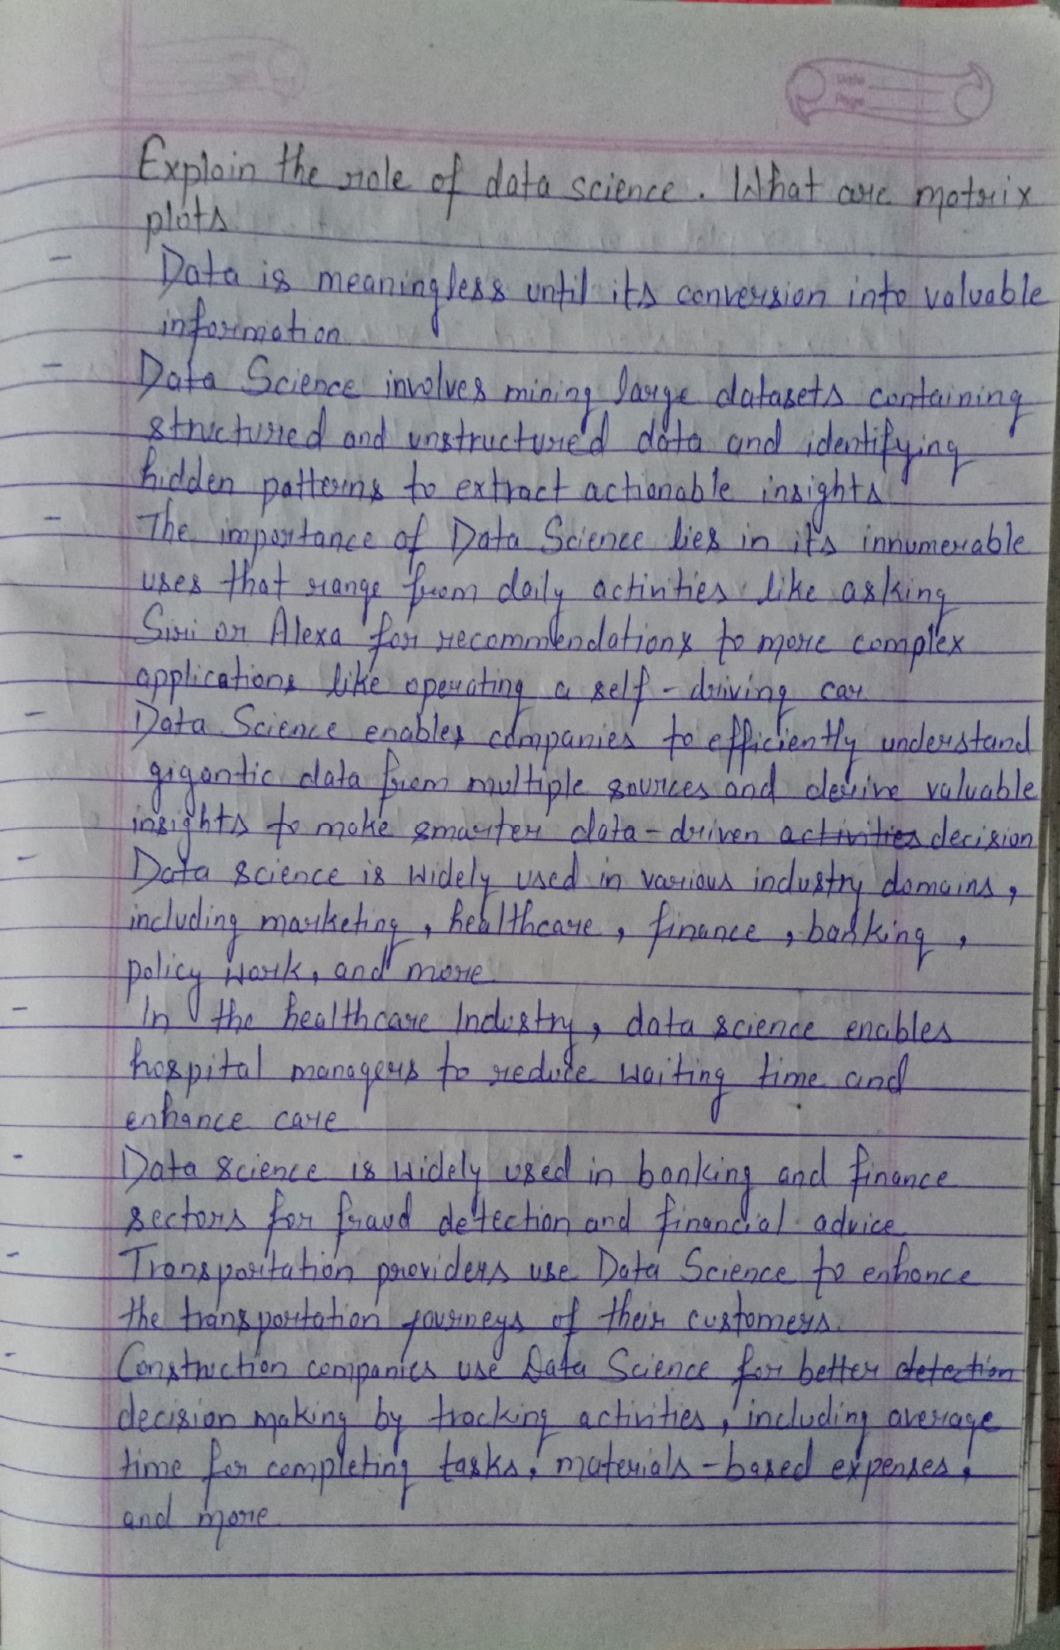 Date
Page
Explain the role of data science. What are matrix
plots
- Data is meaningless until its conversion into valuable
information
- Data Science involves mining large datasets containing
structured and unstructured data and identifying
hidden patterns to extract actionable insights
- The importance of Data Science lies in its innumerable
uses that range from daily activities like asking
Siri or Alexa for recommendations to more complex
applications like operating a self-driving car
- Data Science enables companies to efficiently understand
gigantic data from multiple sources and derive valuable
insights to make smarter data-driven activities decision
- Data science is widely used in various industry domains,
including marketing, healthcare, finance, banking,
policy work, and more
- In the healthcare Industry, data science enables
hospital managers to reduce waiting time and
enhance care
- Data science is widely used in banking and finance
sectors for fraud detection and financial advice
- Transportation providers use Data Science to enhance
the transportation journeys of their customers.
- Construction companies use Data Science for better detection
decision making by tracking activities, including average
time for completing tasks, materials-based expenses,
and more